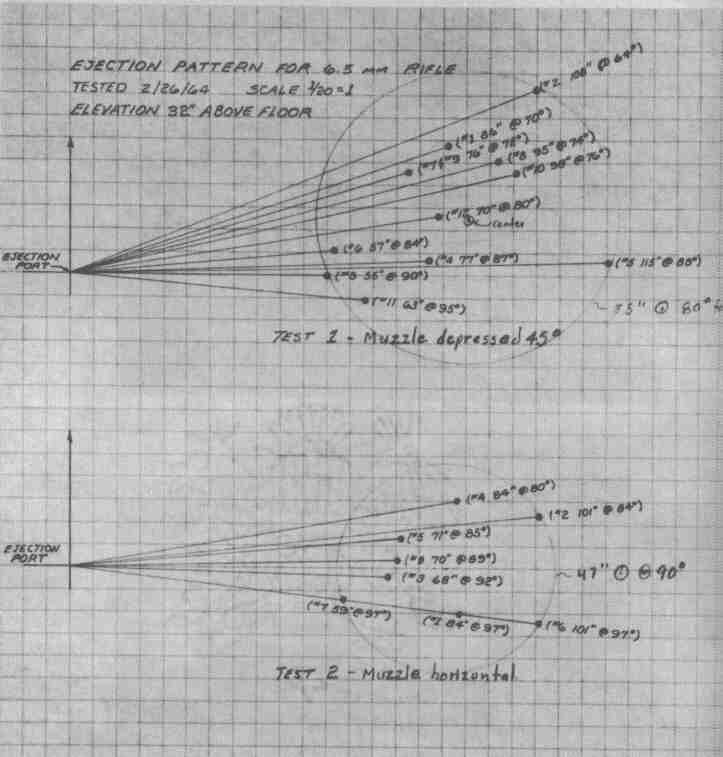 EJECTION PATTERN FOR 6.5 mm RIFLE
TESTED 2/26/64 SCALE 1/20=1
ELEVATION 32" ABOVE FLOOR
(#2 106" @ 64°)
(#1 86" @ 70°)
(#9 76" @ 72°)
(#7
(#8 95" @ 74°)
(#10 98" @ 76°)
70" @ 80°)
center
(#6 57" @ 84°)
EJECTION
PORT
(#4 77" @ 87°)
(#5 115" @ 88°)
(#3 55" @ 90°)
(#11 63" @ 95°)
@ 80°
TEST 1 - Muzzle depressed 45°
(#4 84" @ 80°)
(#2 101" @ 84°)
(#5 71" @ 85°)
EJECTION
PORT
(#8 70" @ 89°)
(#3 68" @ 92°)
~ 47" @ 90°
(#7 59" @ 97°)
(#1 84" @ 97°)
(#6 101" @ 97°)
TEST 2 - Muzzle horizontal